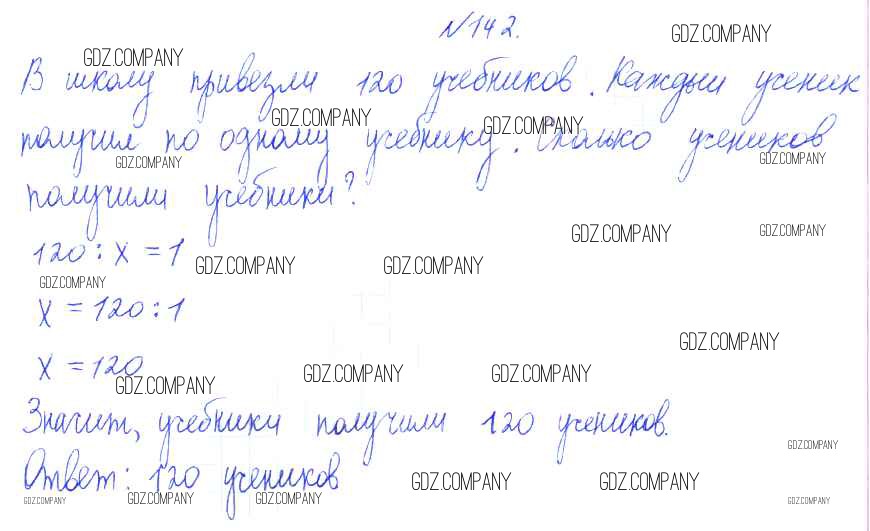 №142.
GDZ.COMPANY
GDZ.COMPANY
В школу привезли 120 учебников. Каждый ученик
GDZ.COMPANY GDZ.COMPANY
получил по одному учебнику. Сколько учеников
GDZ.COMPANY GDZ.COMPANY
получили учебники?
GDZ.COMPANY GDZ.COMPANY
120 : x = 1
GDZ.COMPANY GDZ.COMPANY
GDZ.COMPANY
x = 120 : 1
GDZ.COMPANY
x = 120
GDZ.COMPANY GDZ.COMPANY GDZ.COMPANY
Значит, учебники получили 120 учеников.
GDZ.COMPANY
Ответ: 120 учеников
GDZ.COMPANY GDZ.COMPANY
GDZ.COMPANY GDZ.COMPANY GDZ.COMPANY GDZ.COMPANY